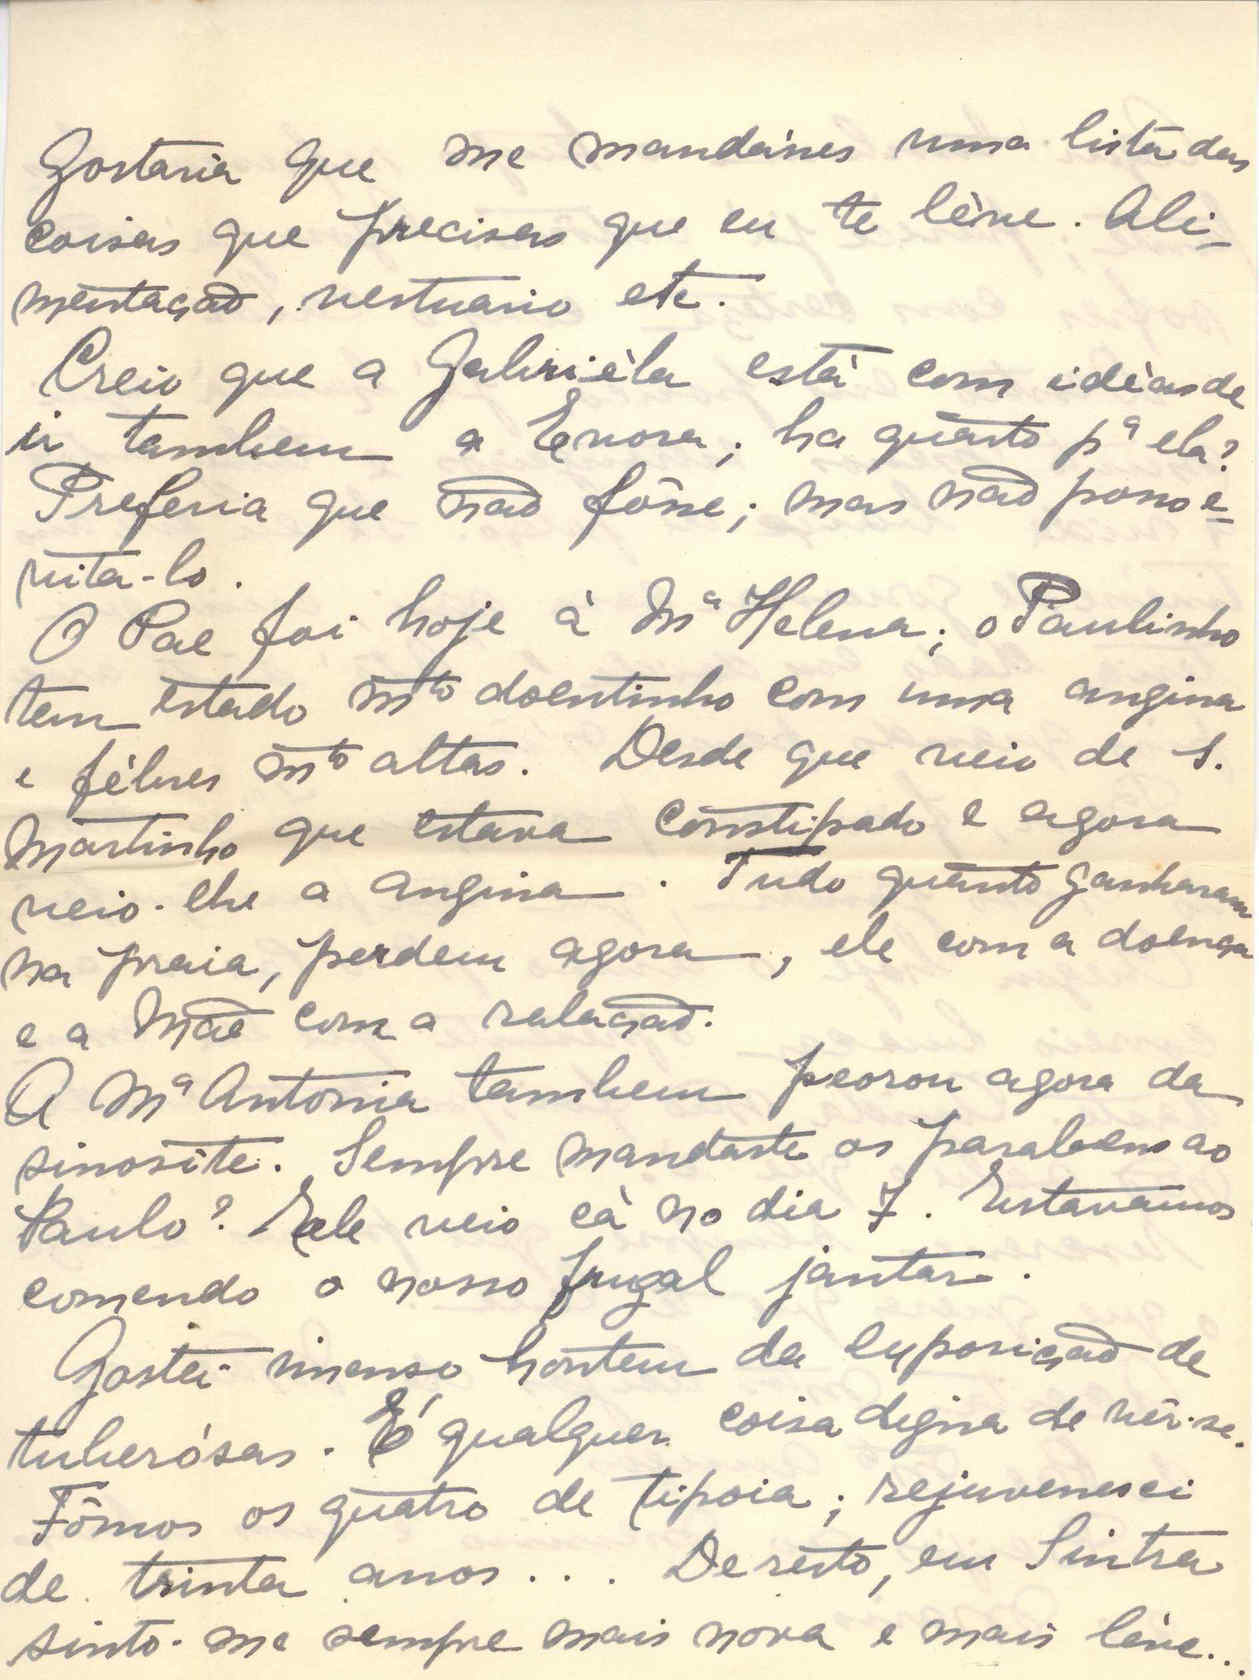 Gostaria que me mandásses uma lista das
coisas que precisas que eu te léve. Ali-
mentação, vestuario etc.
Creio que a Gabriéla está com idéas de
ir tambem a Evora; ha quarto pª ela?
Preferia que não fôsse; mas não posso e-
vita-lo.
O Pae foi hoje à Mª Helena; o Paulinho
tem estado mto doentinho com uma angina
e fébres mto altas. Desde que veio de S.
Martinho que estava constipado e agora
veio-lhe a angina. Tudo quanto ganharam
na praia, perdem agora, ele com a doença
e a Mãe com a ralação.
A Mª Antonia tambem peorou agora da
sinosite. Sempre mandaste os parabens ao
Paulo? Ele veio cá no dia 7. Estavamos
comendo o nosso frugal jantar.
Gostei imenso hontem da exposição de
tuberósas. É qualquer coisa digna de vêr-se.
Fômos os quatro de tipoia; rejuvenesci
de trinta anos... De resto, em Sintra
sinto-me sempre mais nova e mais léve...